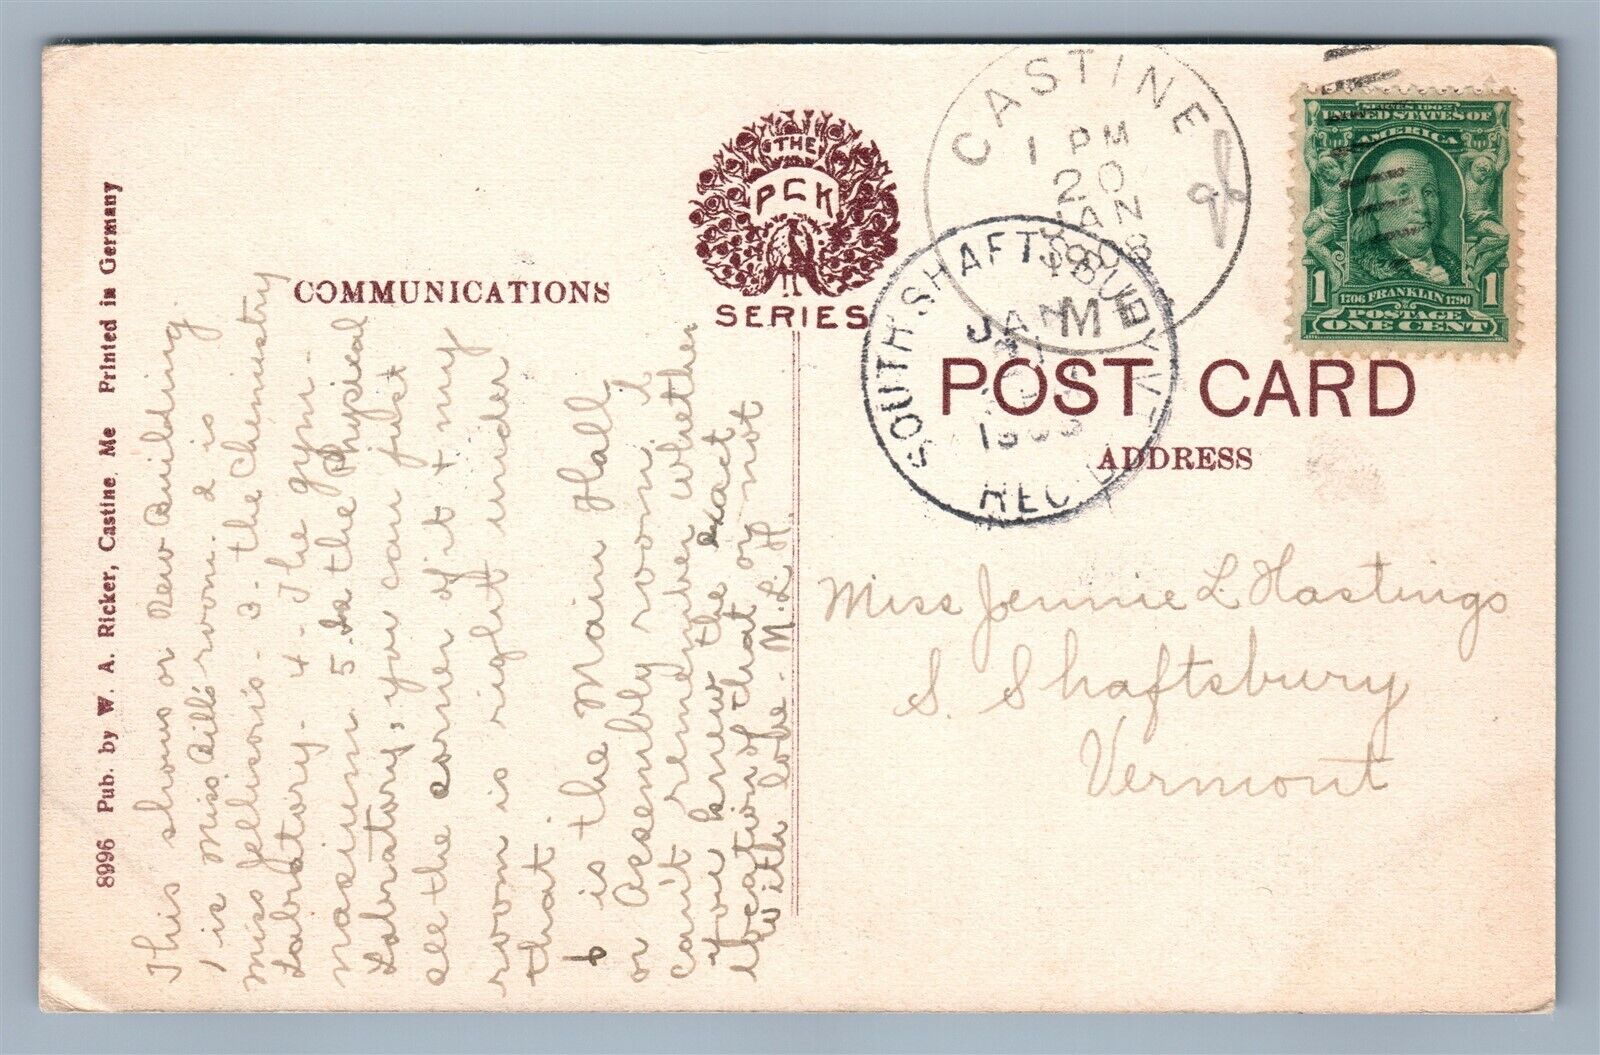 8996 Pub. by W. A. Ricker, Castine, Me Printed in Germany
COMMUNICATIONS
THE
PCK
SERIES
CASTINE
1 PM
20
JAN
1908
ME
SOUTH SHAFTSBURY VT.
JAN
REC'D
SERIES 1902
UNITED STATES OF
AMERICA
1706 FRANKLIN 1790
1 POSTAGE 1
ONE CENT
POST CARD
ADDRESS
Miss Jennie L. Hastings
S. Shaftsbury
Vermont
This shows or New Building
1 is Miss Bill's room. 2 is
Miss Jellison's - 3 - the Chemistry
Labratory - 4 - The gym-
nasium 5 is the Physical
Labratory, you can just
see the corner of it + my
room is right under
that.
6 is the Main Hall
or Assembly room. I
can't remember whether
you knew the exact
location of that or not
With love - M. L. H.